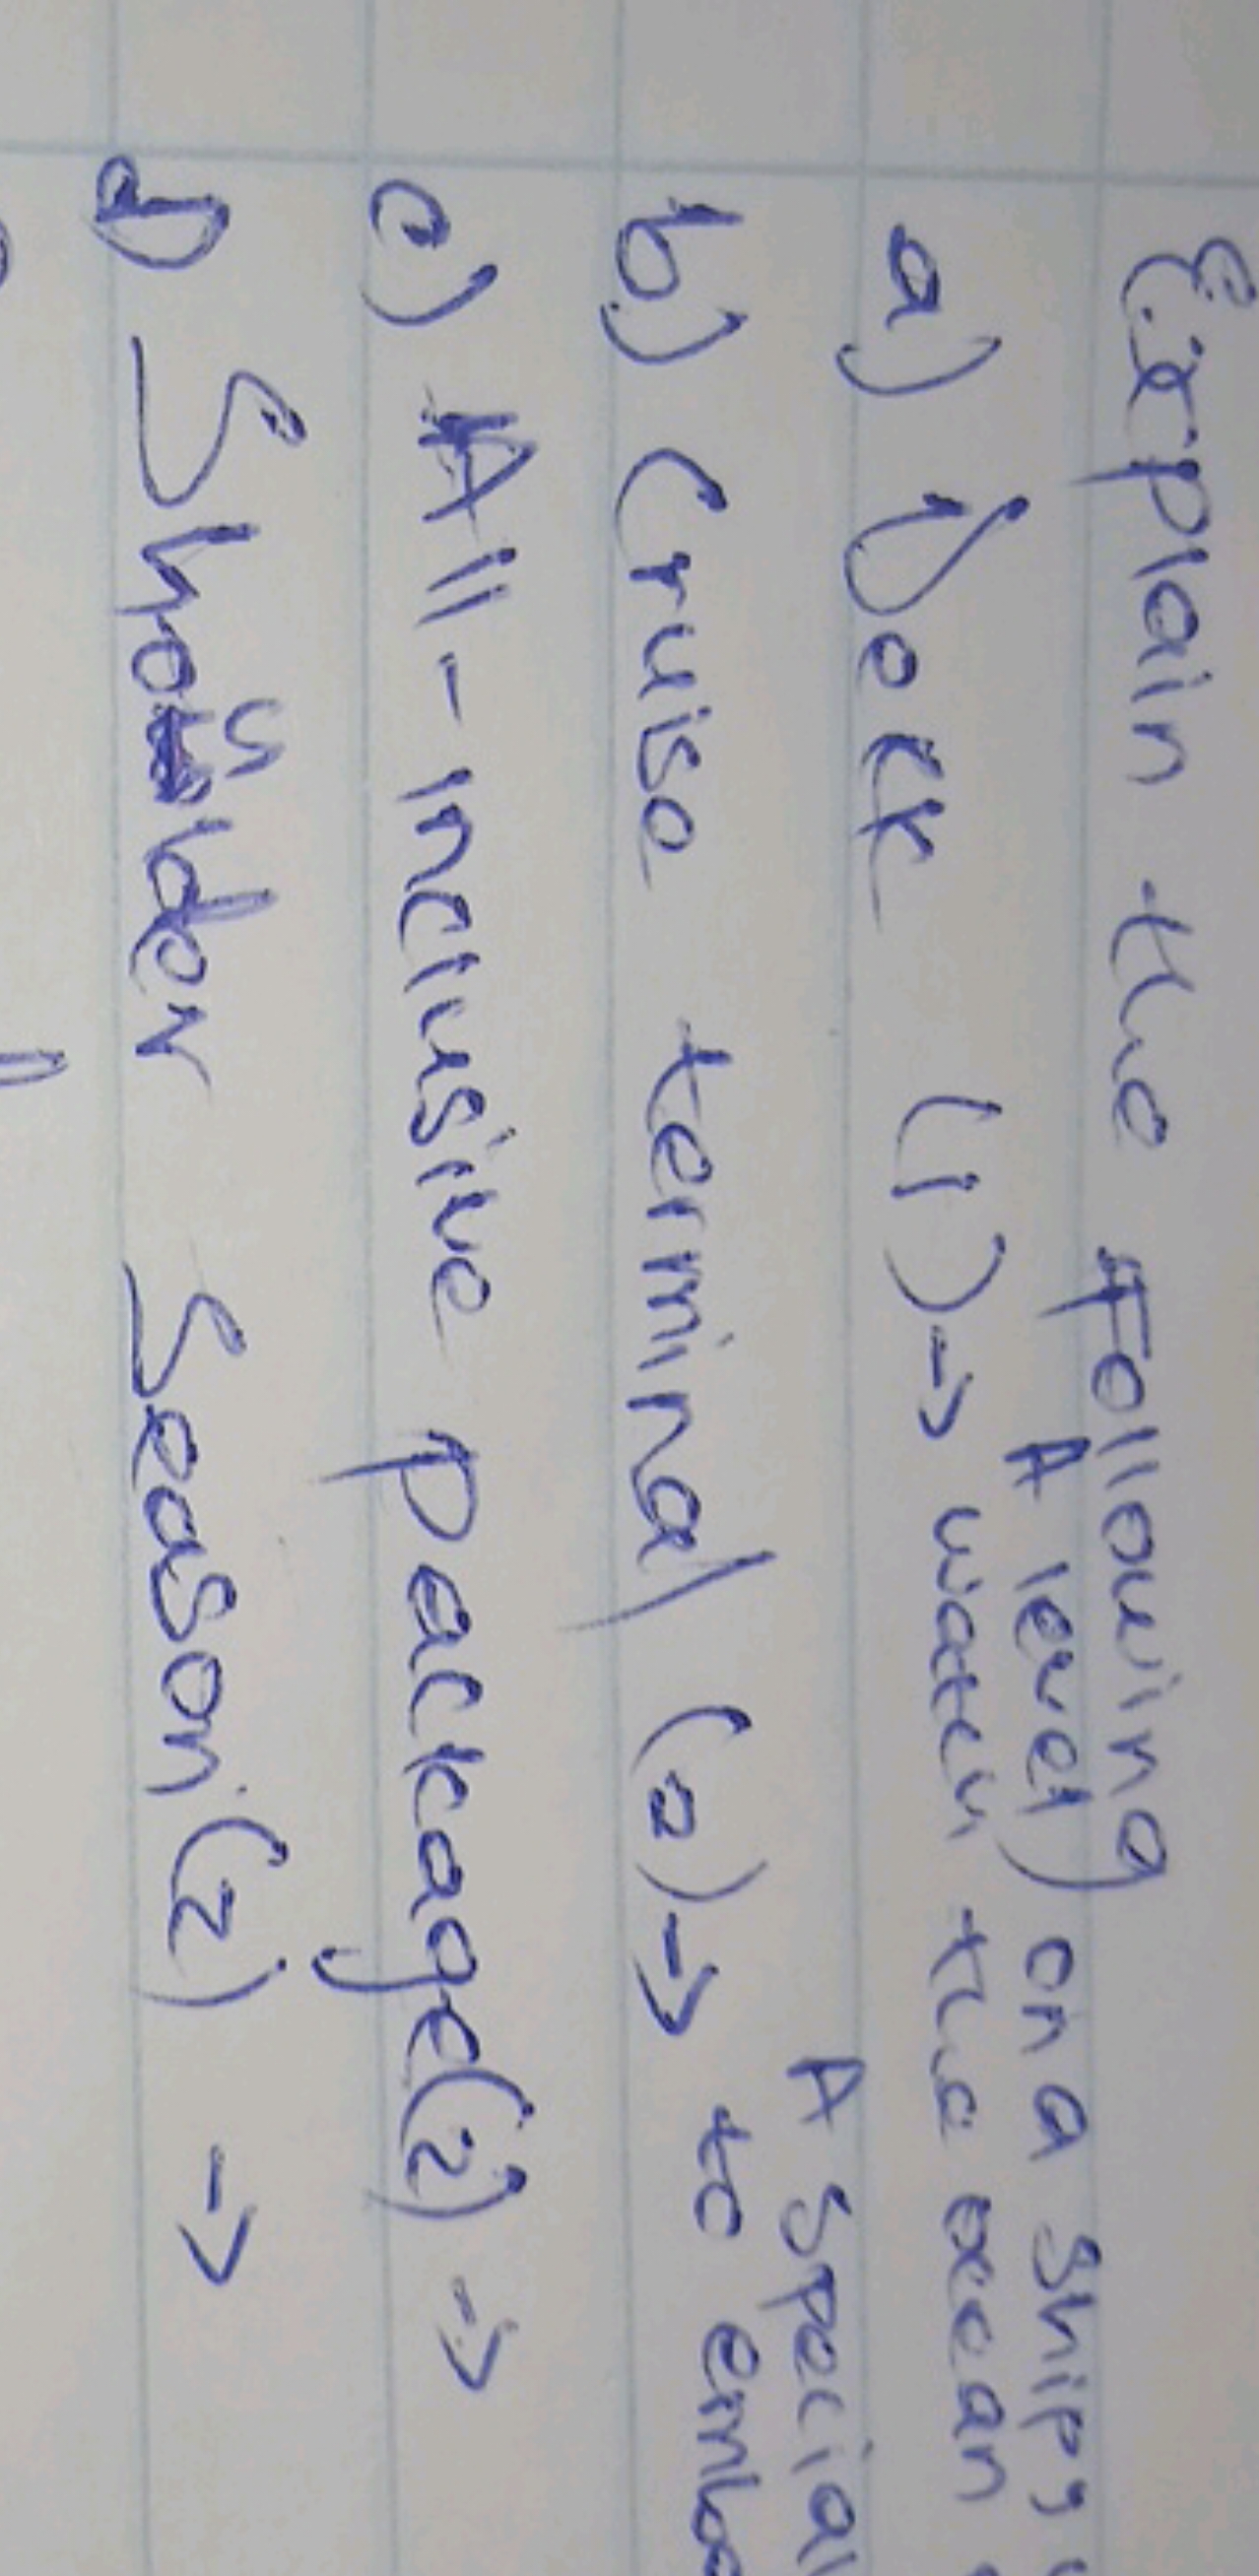 Explain the Following
A level on a ship,
a) Deck (1) → watch the ocean
A special
b) Cruise terminal (2) → to emba
c) All-inclusive package (2) →
d) Shoulder Season (2) →